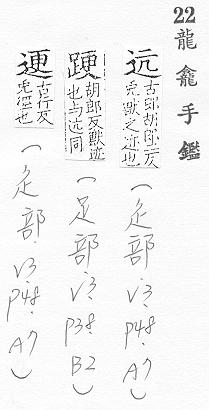 22 龍龕手鑑
远 古郎胡郎二反
兎獸之迹也
(辵部.V3.P48.A7)
䟘 胡郎反獸迹
也与远同
(足部.V3.P38.B2)
𨁈 古行反
兎迳也
(辵部.V3.P48.A7)